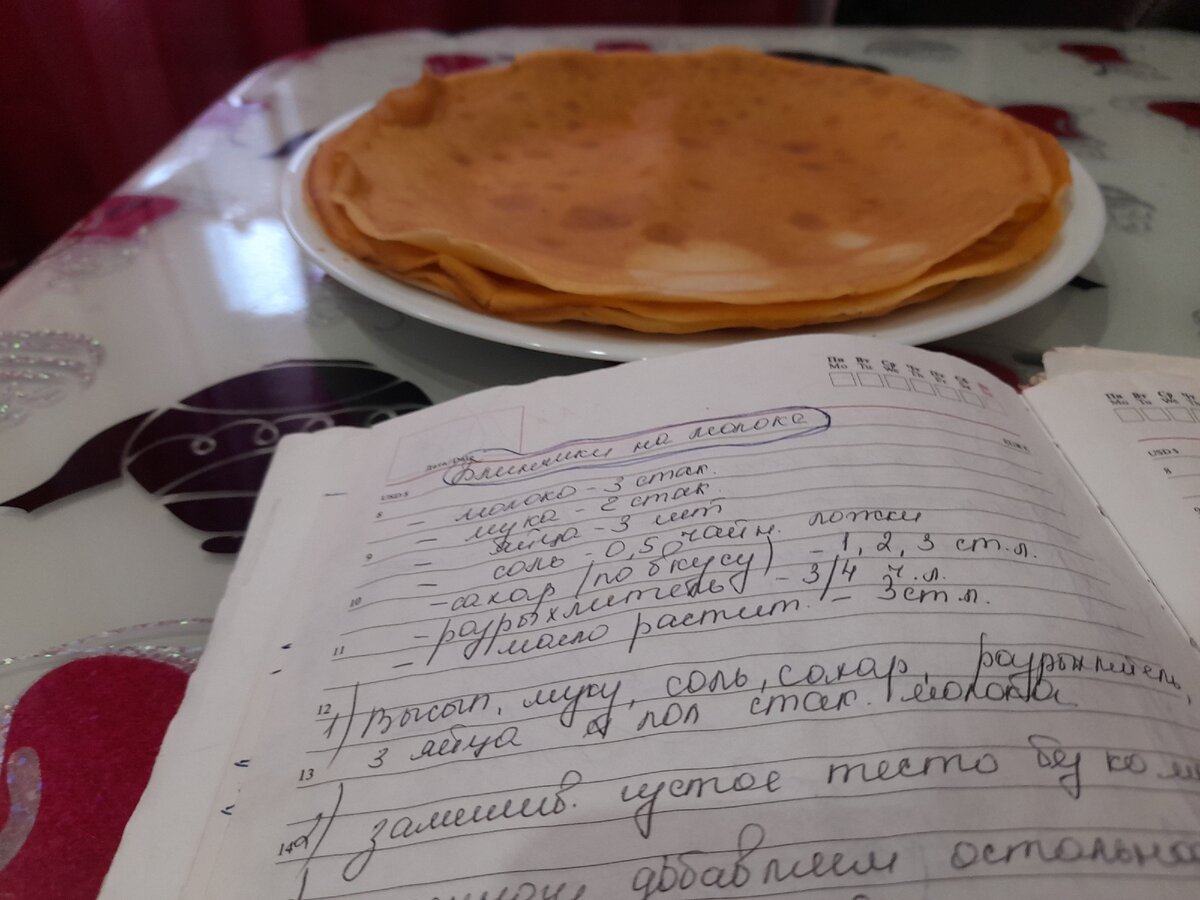 Пн Вт Ср Чт Пт Сб
Mo Tu We Th Fr Sa
Дата/Date
Блинчики на молоке
USD $
8
- молоко - 3 стак.
- мука - 2 стак.
9
- яйца - 3 шт
- соль - 0,5 чайн. ложки
10
- сахар (по вкусу) - 1, 2, 3 ст.л.
- разрыхлитель - 3/4 ч.л.
11
- масло растит. - 3 ст л.
12
1) Высып. муку, соль, сахар, разрыхлитель,
3 яйца и пол стак. молока
13
2) замешив. густое тесто без ком
14
добавляем остальное
Пн Вт Ср Чт
Mo Tu We Th
USD $
8